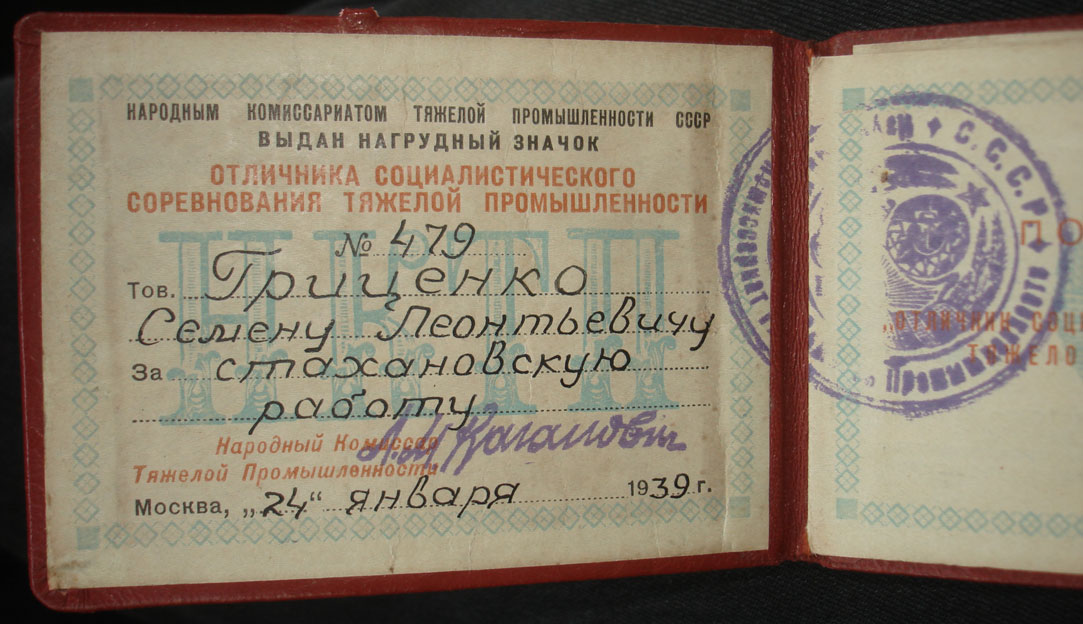 НАРОДНЫМ КОМИССАРИАТОМ ТЯЖЕЛОЙ ПРОМЫШЛЕННОСТИ СССР
ВЫДАН НАГРУДНЫЙ ЗНАЧОК
ОТЛИЧНИКА СОЦИАЛИСТИЧЕСКОГО
СОРЕВНОВАНИЯ ТЯЖЕЛОЙ ПРОМЫШЛЕННОСТИ
НКТП
№ 479
Тов. Гриценко
Семену Леонтьевичу
За стахановскую
работу
Народный Комиссар
Тяжелой Промышленности
Л.М. Каганович
Москва, „24“ января 1939 г.
С.С.С.Р.
Промышленности
ПО
„ОТЛИЧНИК СОЦИ
ТЯЖЕЛО